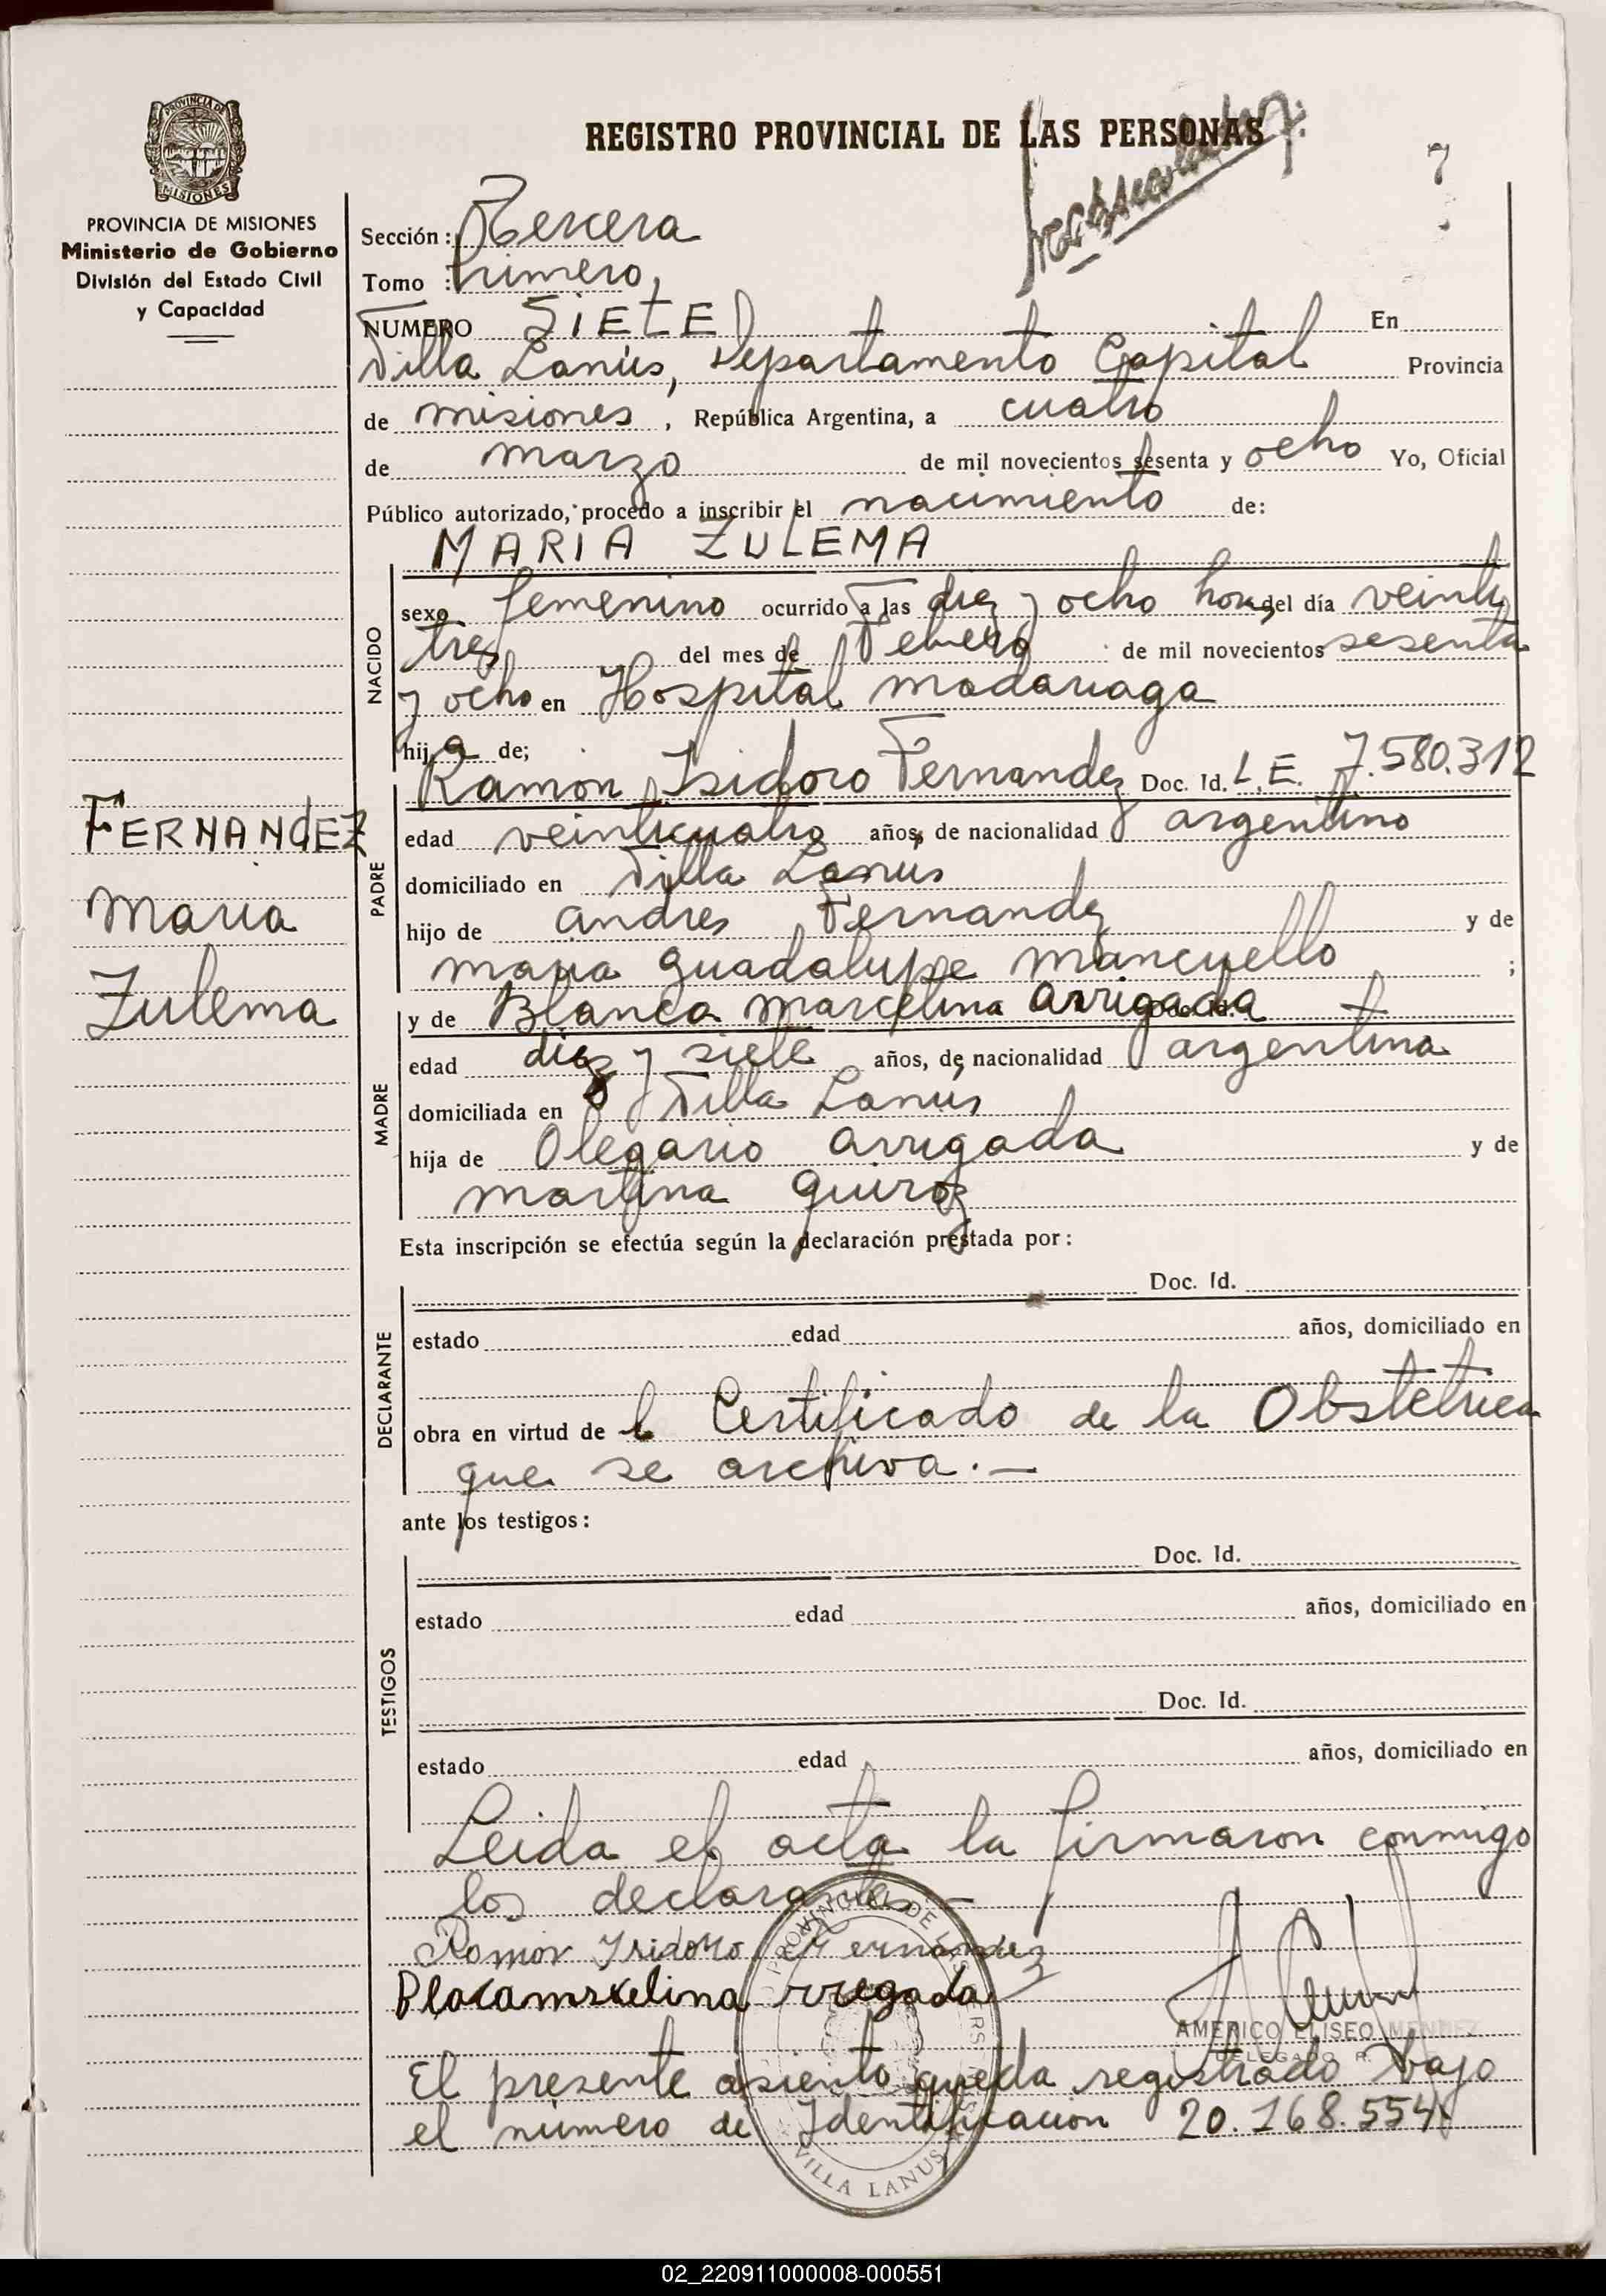 REGISTRO PROVINCIAL DE LAS PERSONAS
7
PROVINCIA DE MISIONES
PROVINCIA DE MISIONES
Ministerio de Gobierno
División del Estado Civil
y Capacidad
Sección: Tercera
Tomo : Primero,
NUMERO SIETE En
Villa Lanús, Departamento Capital Provincia
de misiones, República Argentina, a cuatro
de marzo de mil novecientos sesenta y ocho Yo, Oficial
Público autorizado, procedo a inscribir el nacimiento de:
MARIA ZULEMA
NACIDO
sexo femenino ocurrido a las diez y ocho horas del día veinti
tres del mes de Febrero de mil novecientos sesenta
y ocho en Hospital madariaga
hija de;
FERNANDEZ
Maria
Zulema
PADRE
Ramon Isidoro Fernandez Doc. Id. L.E. 7.580.312
edad veinticuatro años, de nacionalidad argentino
domiciliado en Villa Lanus
hijo de Andres Fernandez y de
maria guadalupe mancuello ;
MADRE
y de Blanca marcelina arrigada
edad diez y siete años, de nacionalidad argentina
domiciliada en Villa Lanús
hija de Olegario arrigada y de
martina quiroz
Esta inscripción se efectúa según la declaración prestada por:
DECLARANTE
Doc. Id.
estado edad años, domiciliado en
obra en virtud del Certificado de la Obstetrica
que se archiva.-
ante los testigos:
TESTIGOS
Doc. Id.
estado edad años, domiciliado en
Doc. Id.
estado edad años, domiciliado en
Leida el acta la firmaron conmigo
los declarantes -
Ramon Ysidoro Fernandez
Blacamrxelina rregada
AMERICO ELISEO MENDEZ
DELEGADO R.
El presente asiento queda registrado bajo
el número de Identificacion 20.168.554
VILLA LANUS
02_220911000008-000551